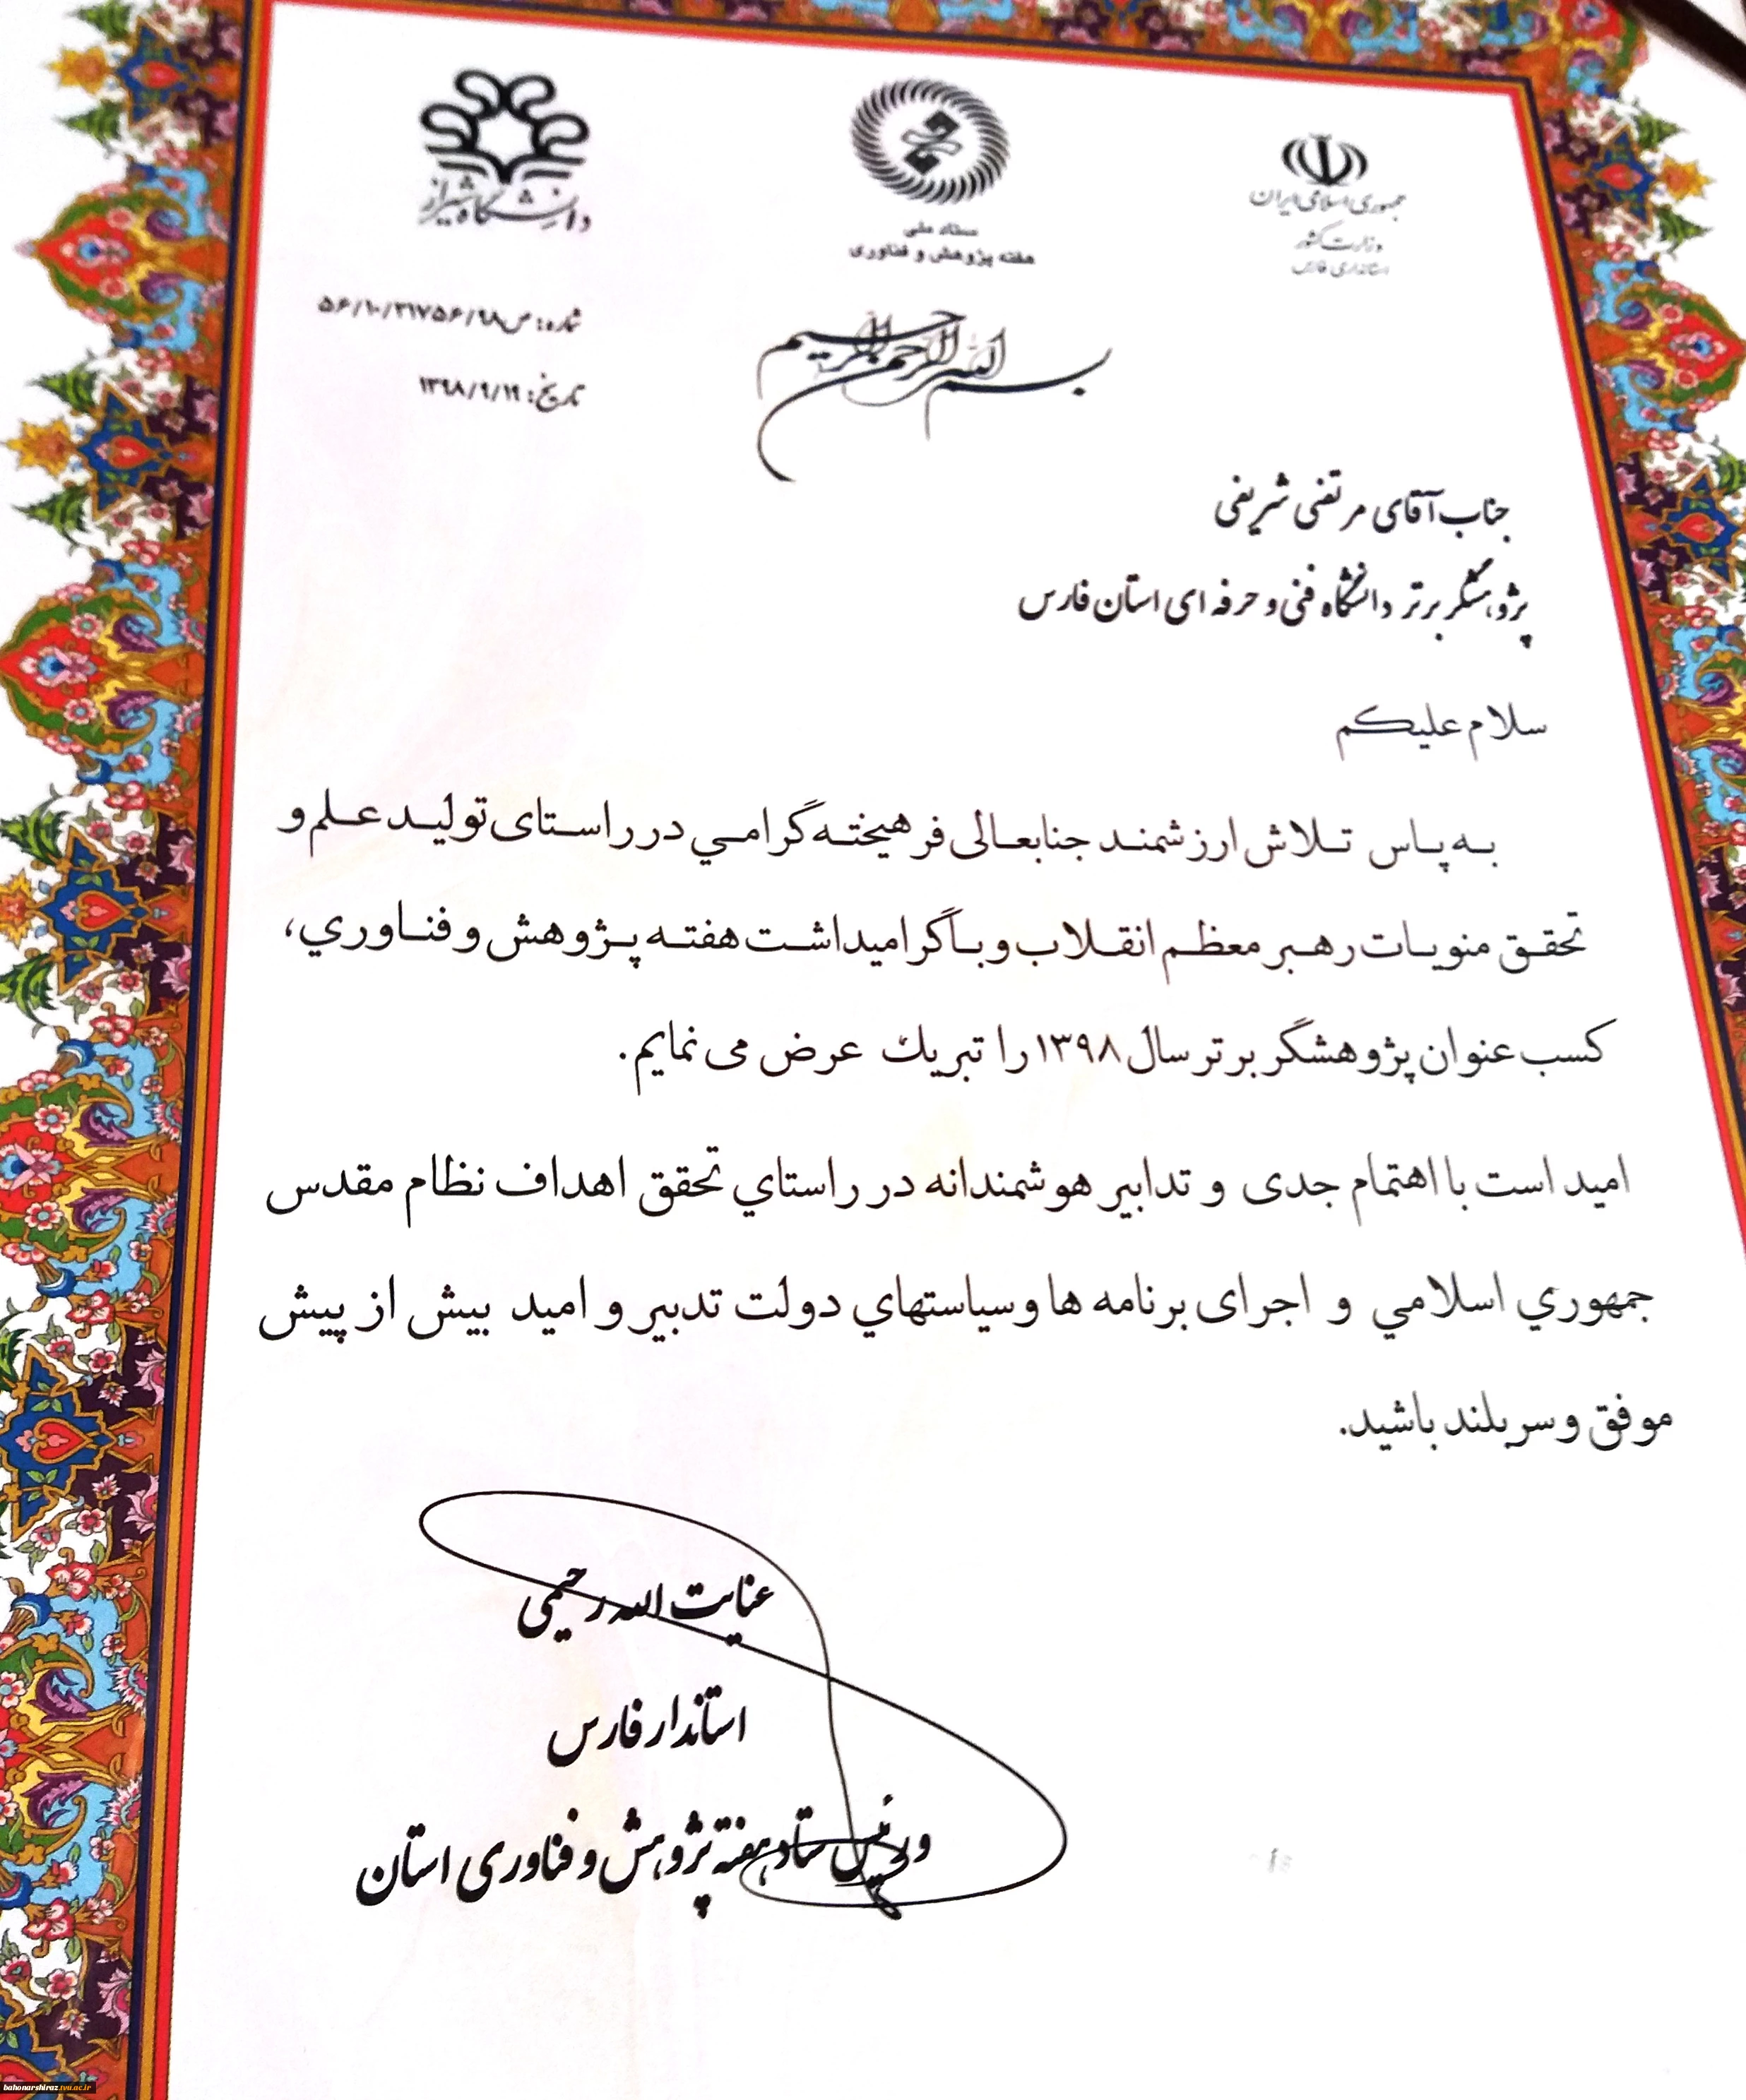 دانشگاه شیراز
ستاد ملی
هفته پژوهش و فناوری
جمهوری اسلامی ایران
وزارت کشور
استانداری فارس
شماره: ص۵۶/۱۰/۳۱۷۵۶/۹۸
تاریخ: ۱۳۹۸/۹/۱۹
بسم الله الرحمن الرحیم
جناب آقای مرتضی شریفی
پژوهشگر برتر دانشگاه فنی و حرفه ای استان فارس
سلام علیکم
به پاس تلاش ارزشمند جنابعالی فرهیخته گرامي در راستای تولید علم و
تحقق منویات رهبر معظم انقلاب و با گرامیداشت هفته پژوهش و فناوري،
کسب عنوان پژوهشگر برتر سال ۱۳۹۸ را تبریك عرض می نمایم.
امید است با اهتمام جدی و تدابیر هوشمندانه در راستاي تحقق اهداف نظام مقدس
جمهوري اسلامي و اجرای برنامه ها و سیاستهاي دولت تدبیر و امید بیش از پیش
موفق و سربلند باشید.
عنایت الله رحیمی
استاندار فارس
و رئیس ستاد هفته پژوهش و فناوری استان
bahonarshiraz.tvu.ac.ir